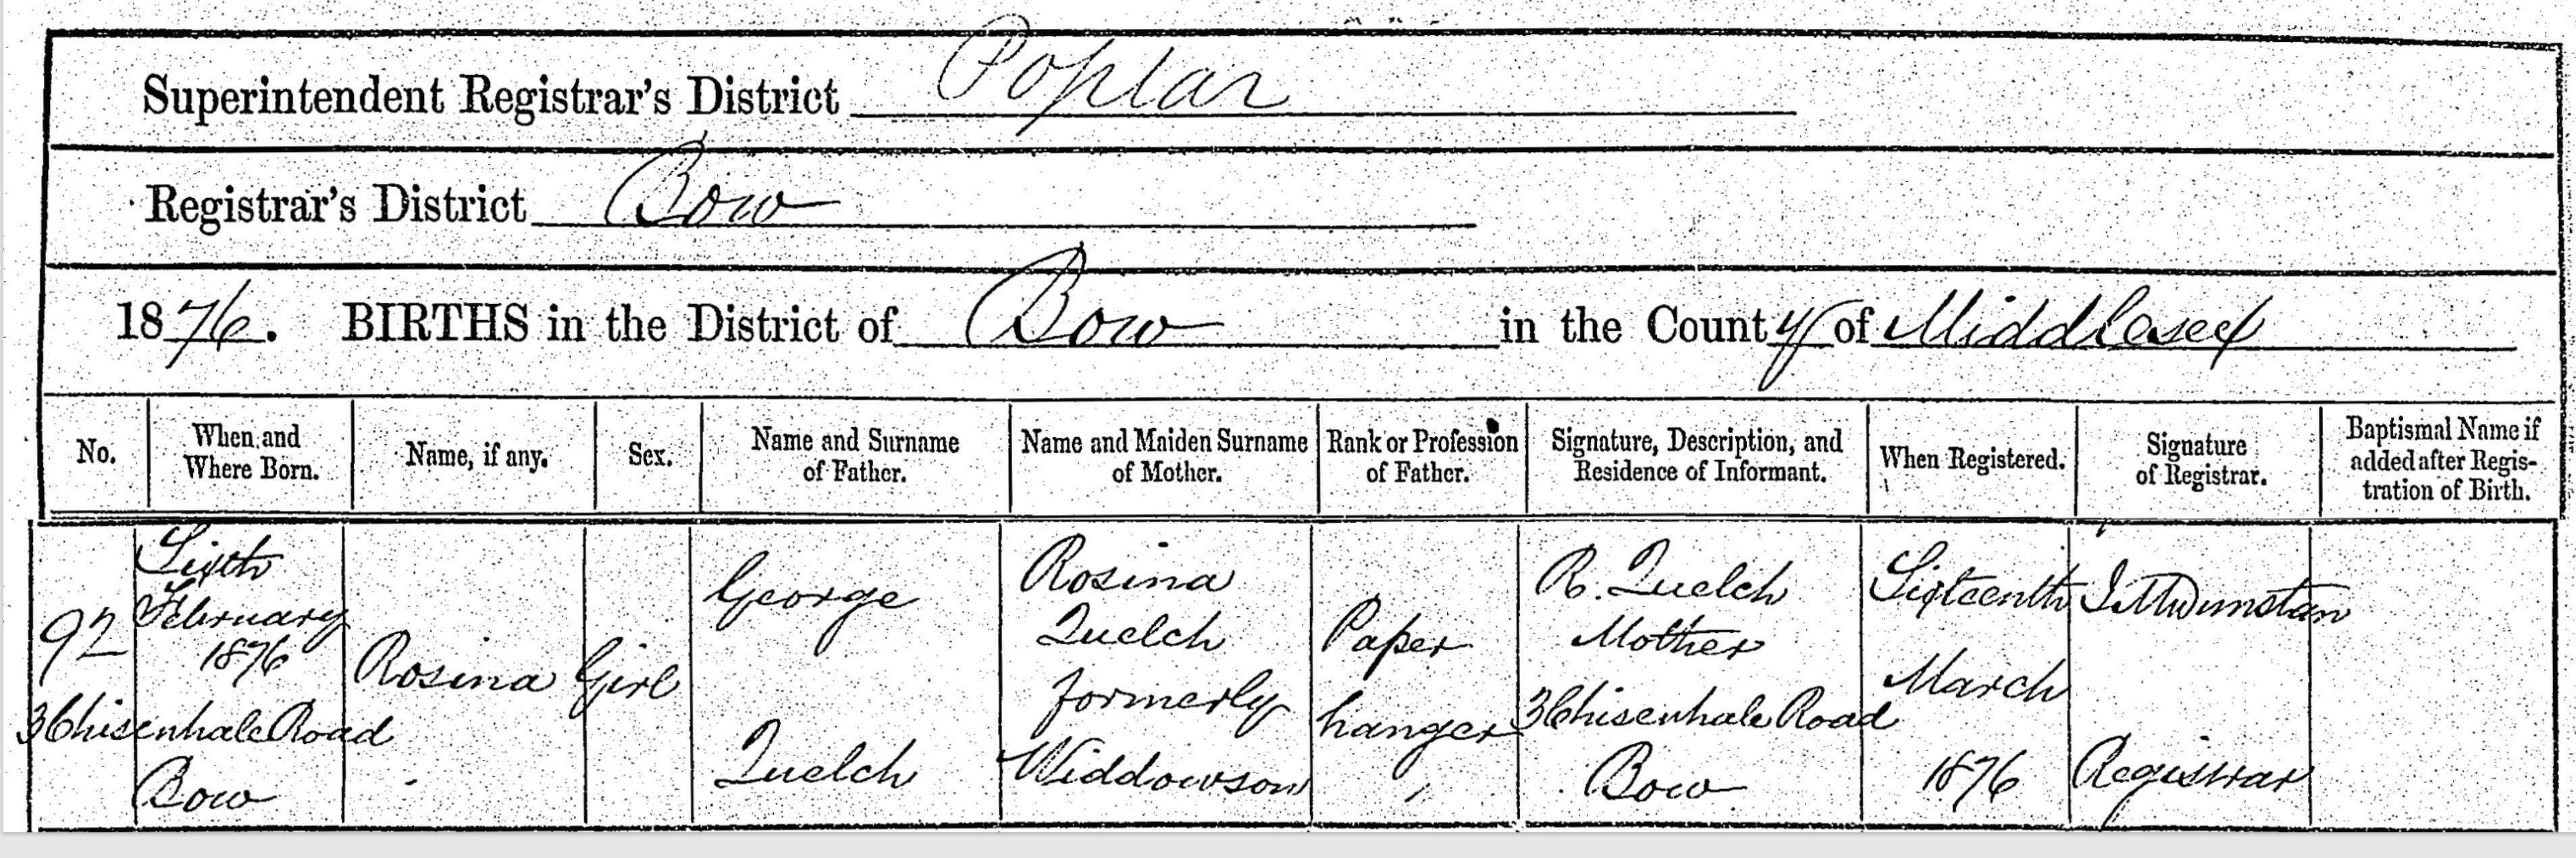 Superintendent Registrar's District Poplar
Registrar's District Bow
1876. BIRTHS in the District of Bow in the County of Middlesex
No.
When and
Where Born.
Name, if any.
Sex.
Name and Surname
of Father.
Name and Maiden Surname
of Mother.
Rank or Profession
of Father.
Signature, Description, and
Residence of Informant.
When Registered.
Signature
of Registrar.
Baptismal Name if
added after Regis-
tration of Birth.
92
Sixth
February
1876
3 Chisenhale Road
Bow
Rosina
Girl
George
Quelch
Rosina
Quelch
formerly
Widdowson
Paper
hanger
R. Quelch
Mother
3 Chisenhale Road
Bow
Sixteenth
March
1876
Registrar